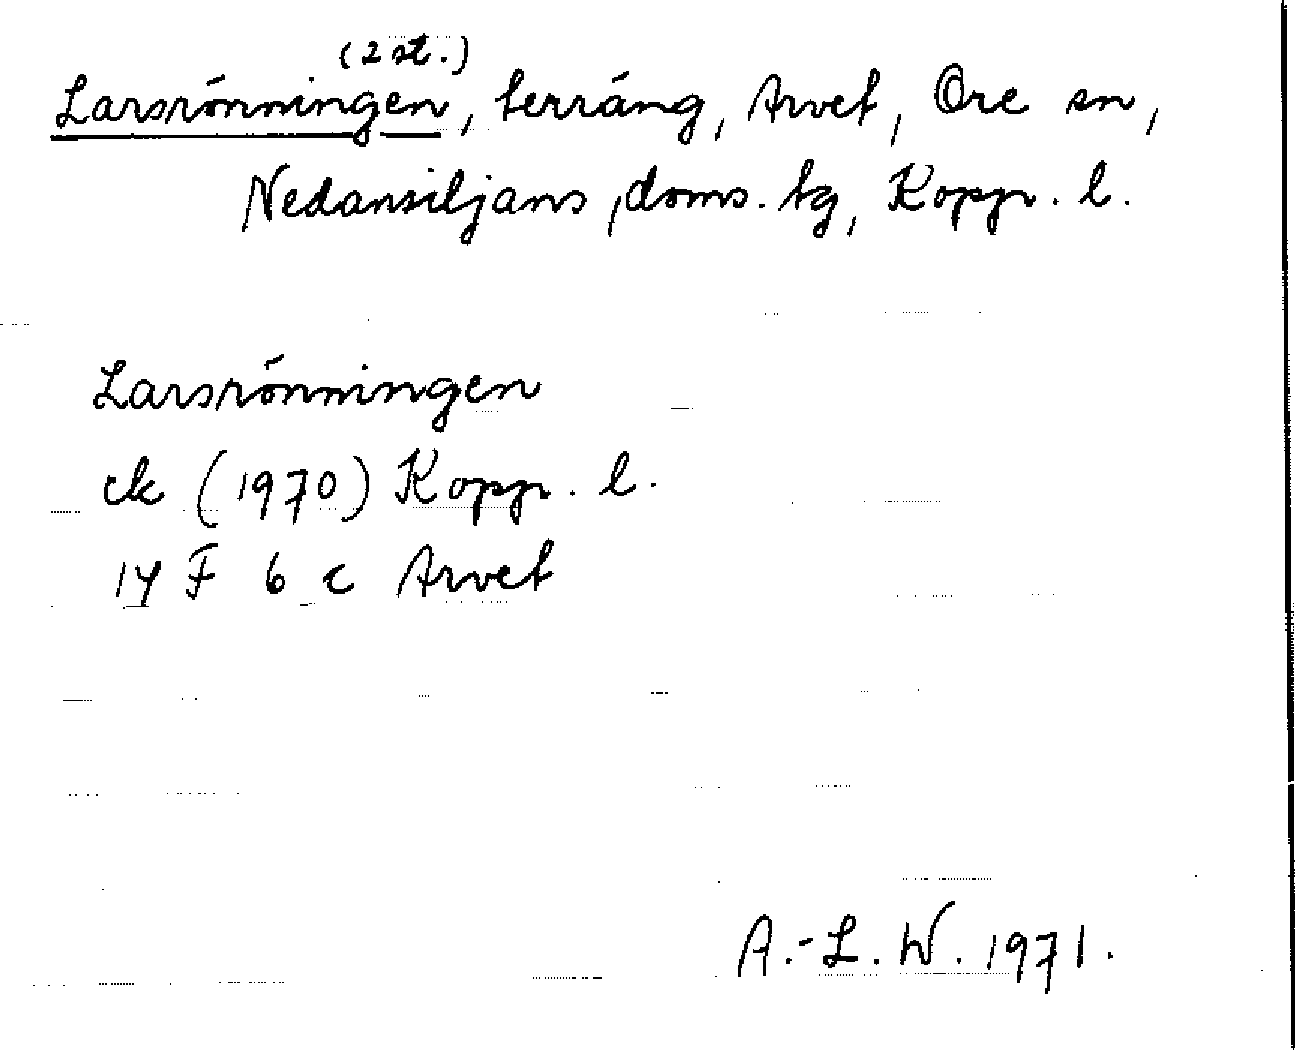 (2 st.)
Larsrönningen, terräng, Arvet, Ore sn,
Nedansiljans doms. tg, Kopp. l.
Larsrönningen
ek (1970) Kopp. l.
14 F 6 c Arvet
A.-L. W. 1971.